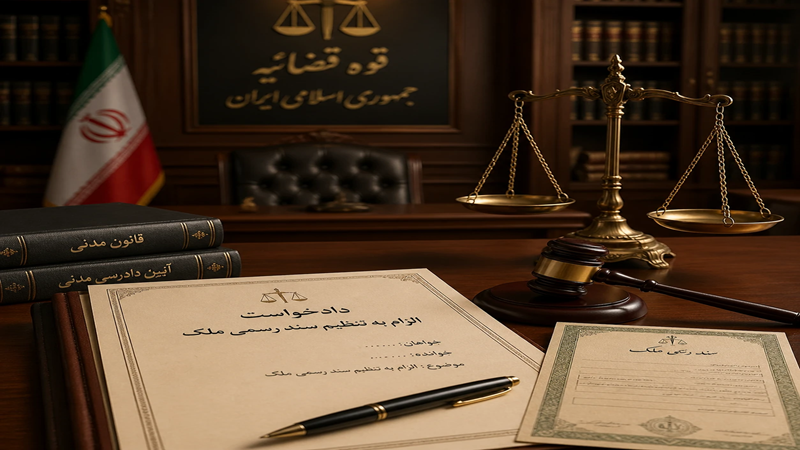 قوه قضائیه
جمهوری اسلامی ایران
قانون مدنی
آیین دادرسی مدنی
دادخواست
الزام به تنظیم سند رسمی ملک
خواهان:......
خوانده:......
موضوع: الزام به تنظیم سند رسمی ملک
سند رسمی ملک